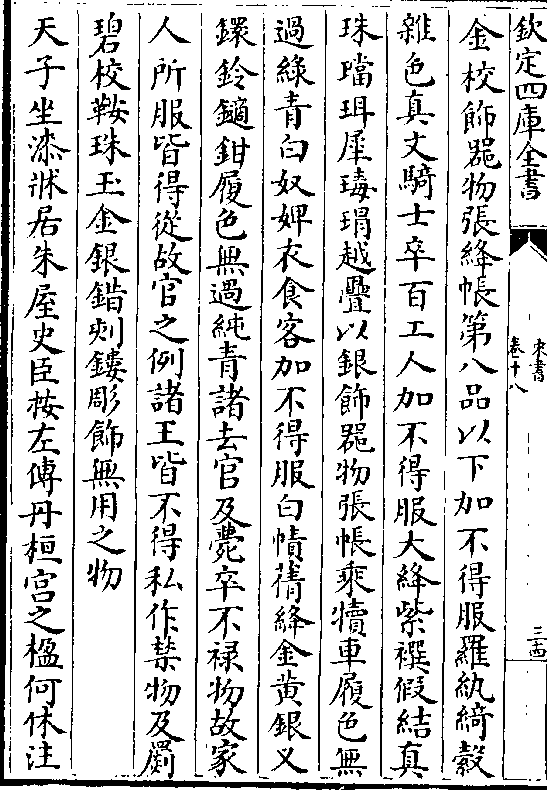 欽定四庫全書
宋書
卷十八
三四
金校飾器物張絳帳第八品以下加不得服羅紈綺縠
雜色真文騎士卒百工人加不得服大絳紫襈假結真
珠璫珥犀瑇瑁越疊以銀飾器物張帳乘犢車履色無
過綠青白奴婢衣食客加不得服白幘蒨絳金黃銀叉
鐶鈴鏑鉗履色無過純青諸去官及薨卒不禄物故家
人所服皆得從故官之例諸王皆不得私作禁物及罽
碧校鞍珠玉金銀錯刻鏤彫飾無用之物
天子坐漆牀居朱屋史臣按左傳丹桓宫之楹何休注